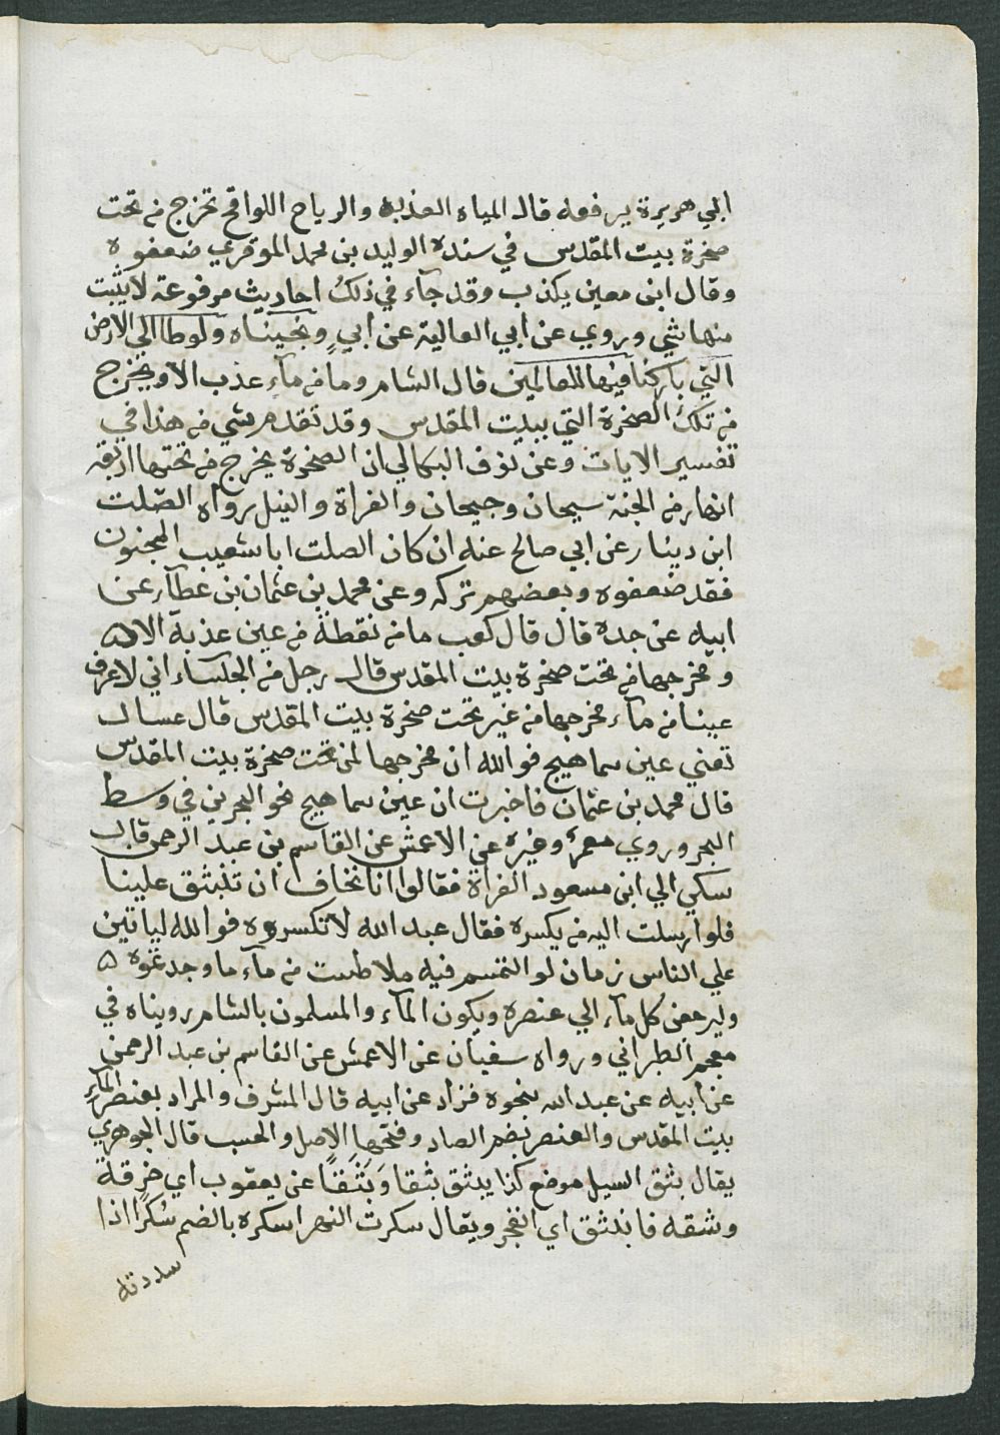 ابي هريرة يرفعه قال المياه العذبه والرياح اللواقح تخرج من تحت
صخرة بيت المقدس في سنده الوليد بن محمد الموقري ضعفوه
وقال ابن معين يكذب وقد جآء في ذلك احاديث مرفوعة لا يثبت
منها شي وروي عن ابي العالية عن أبي ونجيناه ولوطا الي الارض
التي باركنا فيها للعالمين قال الشام وما من مآء عذب الا ويخرج
من تلك الصخرة التي ببيت المقدس وقد تقدم شي من هذا في
تفسير الايات وعن نوف البكالي ان الصخرة يخرج من تحتها اربعة
انهار من الجنة سيحان وجيحان والفراة والنيل رواه الصّلت
ابن دينار عن ابي صالح عنه ان كان الصلت ابا شعيب المجنون
فقد ضعفوه وبعضهم تركه وعن محمد بن عثمان بن عطآء عن
ابيه عن جده قال قال كعب ما من نقطة من عين عذبة الا
ومخرجها من تحت صخرة بيت المقدس قال رجل من الجلساء اني لاعرف
عينا من مآء مخرجها من غير تحت صخرة بيت المقدس قال عسال
تعني عين سماهيج فوالله ان مخرجها لمن تحت صخرة بيت المقدس
قال محمد بن عثمان فاخبرت ان عين سماهيج نحو البحرين في وسط
البحر وروي معمر وغيره عن الاعمش عن القاسم بن عبد الرحمن قال
سكي الي ابن مسعود الفراة فقالوا انا نخاف ان تنبثق علينا
فلو ارسلت اليه من يكسره فقال عبد الله لا تكسروه فوالله لياتين
علي الناس زمان لو التمستم فيه ملا طست من مآء ما وجدتموه
وليرجعن كل مآء الي عنصره ويكون المآء والمسلمون بالشام رويناه في
معجم الطبراني ورواه سفيان عن الاعمش عن القاسم بن عبد الرحمن
عن ابيه عن عبد الله بنحوه فزاد عن ابيه قال المشرف والمراد بعنصر المآء
بيت المقدس والعنصر بضم الصاد وفتحها الاصل والحسب قال الجوهري
يقال بثق السيل موضع كذا يبثق بثقا وَبَثَقًا عن يعقوب اي خرقه
وشقه فانبثق اي انفجر ويقال سكرت النهر اسكره بالضم سُكرًا اذا
سددته